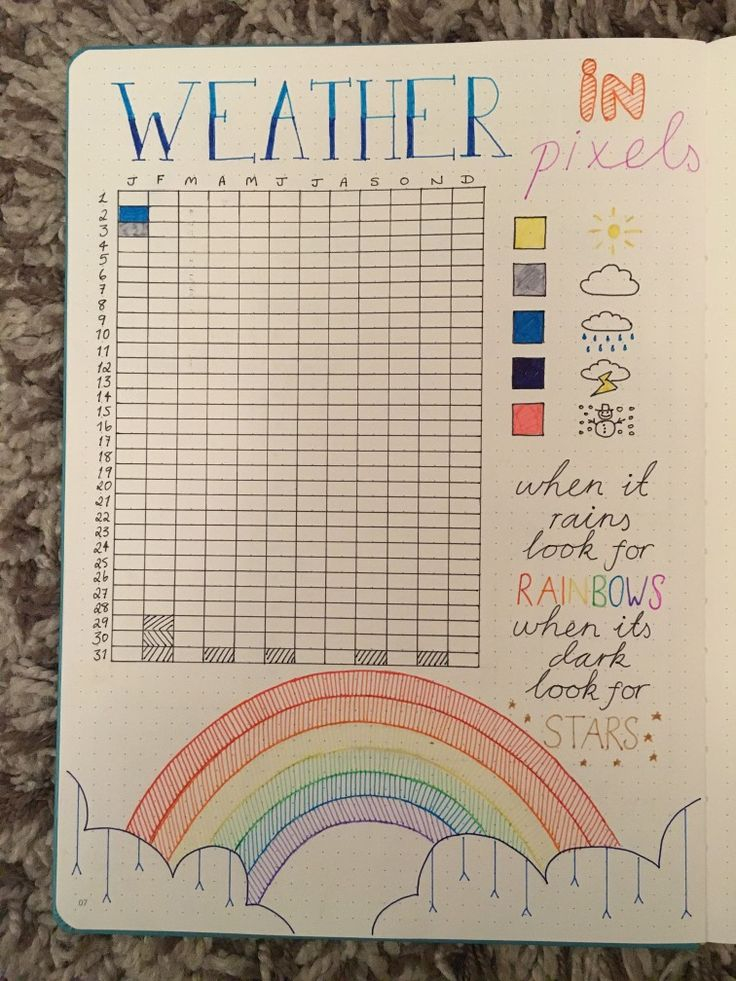 WEATHER
iN
pixels
J F M A M J J A S O N D
1
2
3
4
5
6
7
8
9
10
11
12
13
14
15
16
17
18
19
20
21
22
23
24
25
26
27
28
29
30
31
when it
rains
look for
RAINBOWS
when its
dark
look for
STARS
07